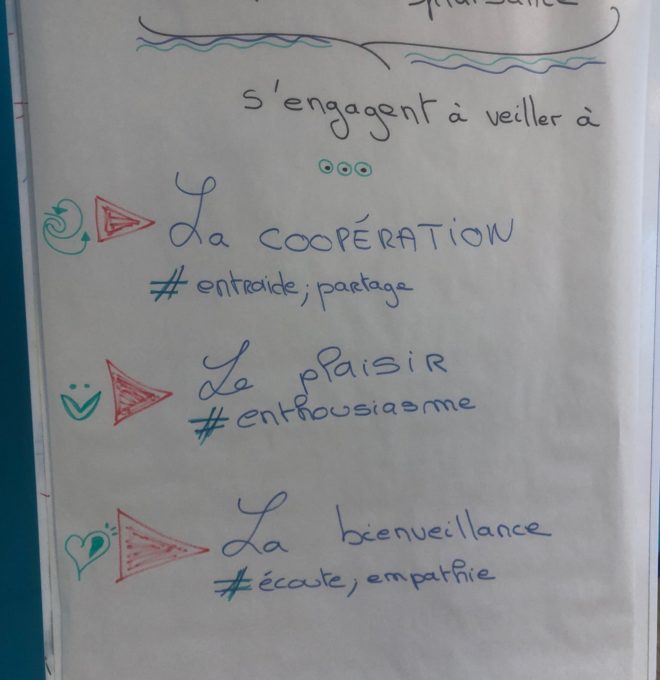 s'engagent à veiller à
La COOPÉRATION
# entraide; partage
Le plaisir
# enthousiasme
La bienveillance
# écoute, empathie